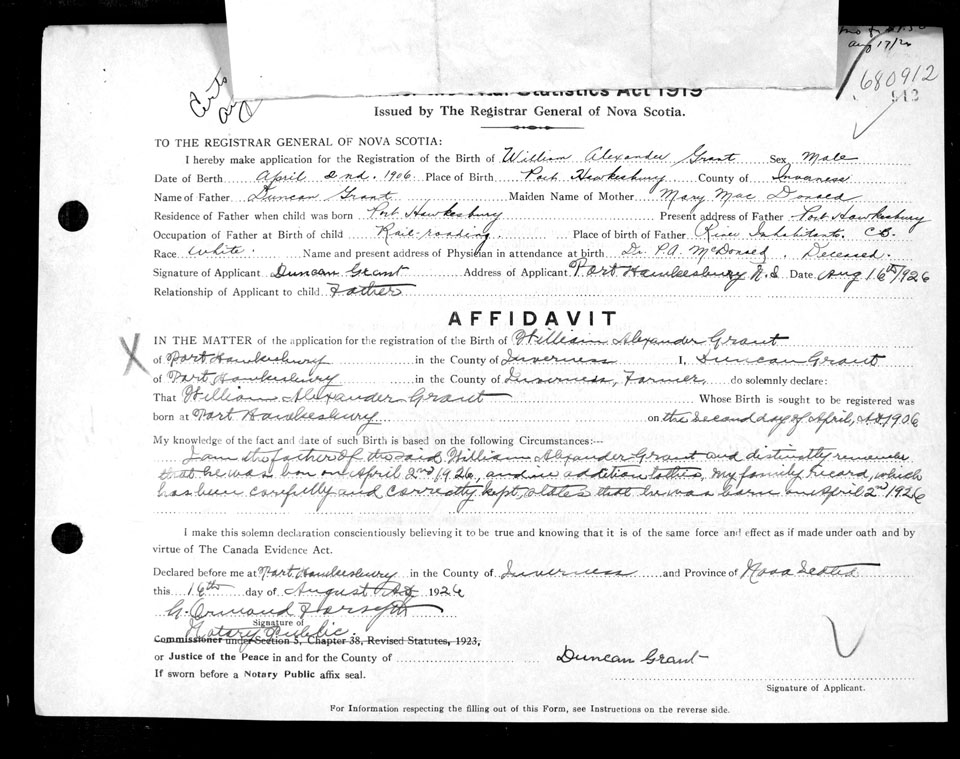 Statistics Act 1919
Aug 17/26
680912
Issued by The Registrar General of Nova Scotia.
TO THE REGISTRAR GENERAL OF NOVA SCOTIA:
I hereby make application for the Registration of the Birth of William Alexander Grant Sex Male
Date of Berth April 2nd. 1906 Place of Birth Port Hawkesbury County of Inverness
Name of Father Duncan Grant Maiden Name of Mother Mary Mac Donald
Residence of Father when child was born Port Hawkesbury Present address of Father Port Hawkesbury
Occupation of Father at Birth of child Rail-roading. Place of birth of Father River Inhabitants. C.B.
Race White. Name and present address of Physician in attendance at birth Dr. P.A. McDonald, Deceased.
Signature of Applicant Duncan Grant Address of Applicant Port Hawkesbury N.S Date Aug 16th/1926
Relationship of Applicant to child Father
AFFIDAVIT
IN THE MATTER of the application for the registration of the Birth of William Alexander Grant
of Port Hawkesbury in the County of Inverness I, Duncan Grant
of Port Hawkesbury in the County of Inverness, Farmer, do solemnly declare:
That William Alexander Grant Whose Birth is sought to be registered was
born at Port Hawkesbury on the second day of April, A.D 1906
My knowledge of the fact and date of such Birth is based on the following Circumstances:--
I am the father of the said William Alexander Grant and distinctly remember
that he was born on April 2nd 1926, and in addition to this, my family record, which
has been carefully and correctly kept, states that he was born on April 2nd 1926
I make this solemn declaration conscientiously believing it to be true and knowing that it is of the same force and effect as if made under oath and by
virtue of The Canada Evidence Act.
Declared before me at Port Hawkesbury in the County of Inverness and Province of Nova Scotia
this 16th day of August A.D 1926
G. Ormand Forsyth
Signature of
Notary Public.
Commissioner under Section 5, Chapter 38, Revised Statutes, 1923,
or Justice of the Peace in and for the County of Duncan Grant
If sworn before a Notary Public affix seal.
Signature of Applicant.
For Information respecting the filling out of this Form, see Instructions on the reverse side.